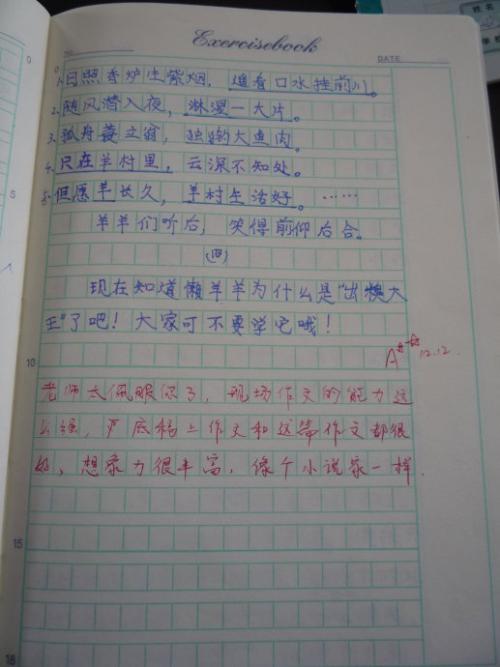 Exercisebook
NO.
DATE
1.日照香炉生紫烟，遥看口水挂前川。
2.随风潜入夜，淋湿一大片。
3.孤舟蓑立翁，独钓大鱼肉。
4.只在羊村里，云深不知处。
5.但愿羊长久，羊村生活好。……
羊羊们听后，笑得前仰后合。
(四)
现在知道懒羊羊为什么是“出糗大
王”了吧！大家可不要学它哦！
A 12.12.
10
老师太佩服你了，现场作文的能力这
么强，底稿上作文和这篇作文都很
好，想象力很丰富，像个小说家一样
15
18